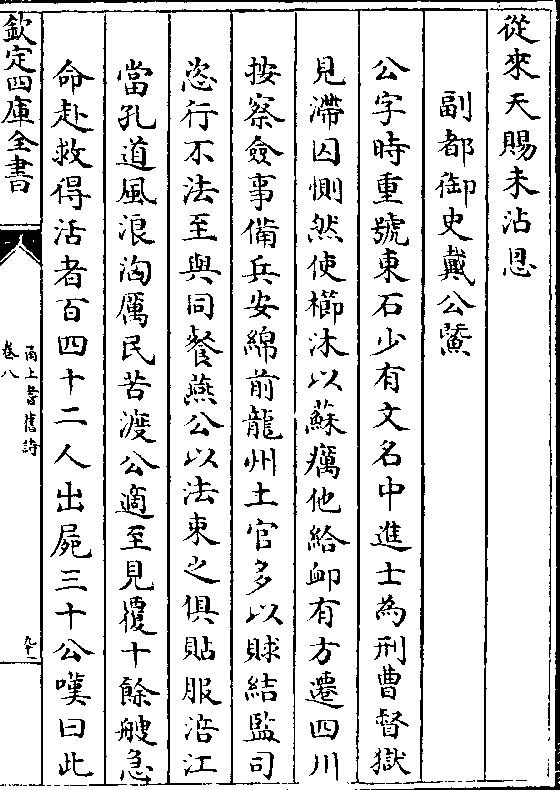 從來天賜未沾恩
副都御史戴公鱀
公字時重號東石少有文名中進士為刑曹督獄
見滯囚惻然使櫛沐以蘇癘他給䘏有方遷四川
按察僉事備兵安綿前龍州土官多以賕結監司
恣行不法至與同餐燕公以法束之俱貼服涪江
當孔道風浪洶厲民苦渡公適至見覆十餘艘急
命赴救得活者百四十二人出屍三十公嘆曰此
欽定四庫全書
甬上耆舊詩
卷八